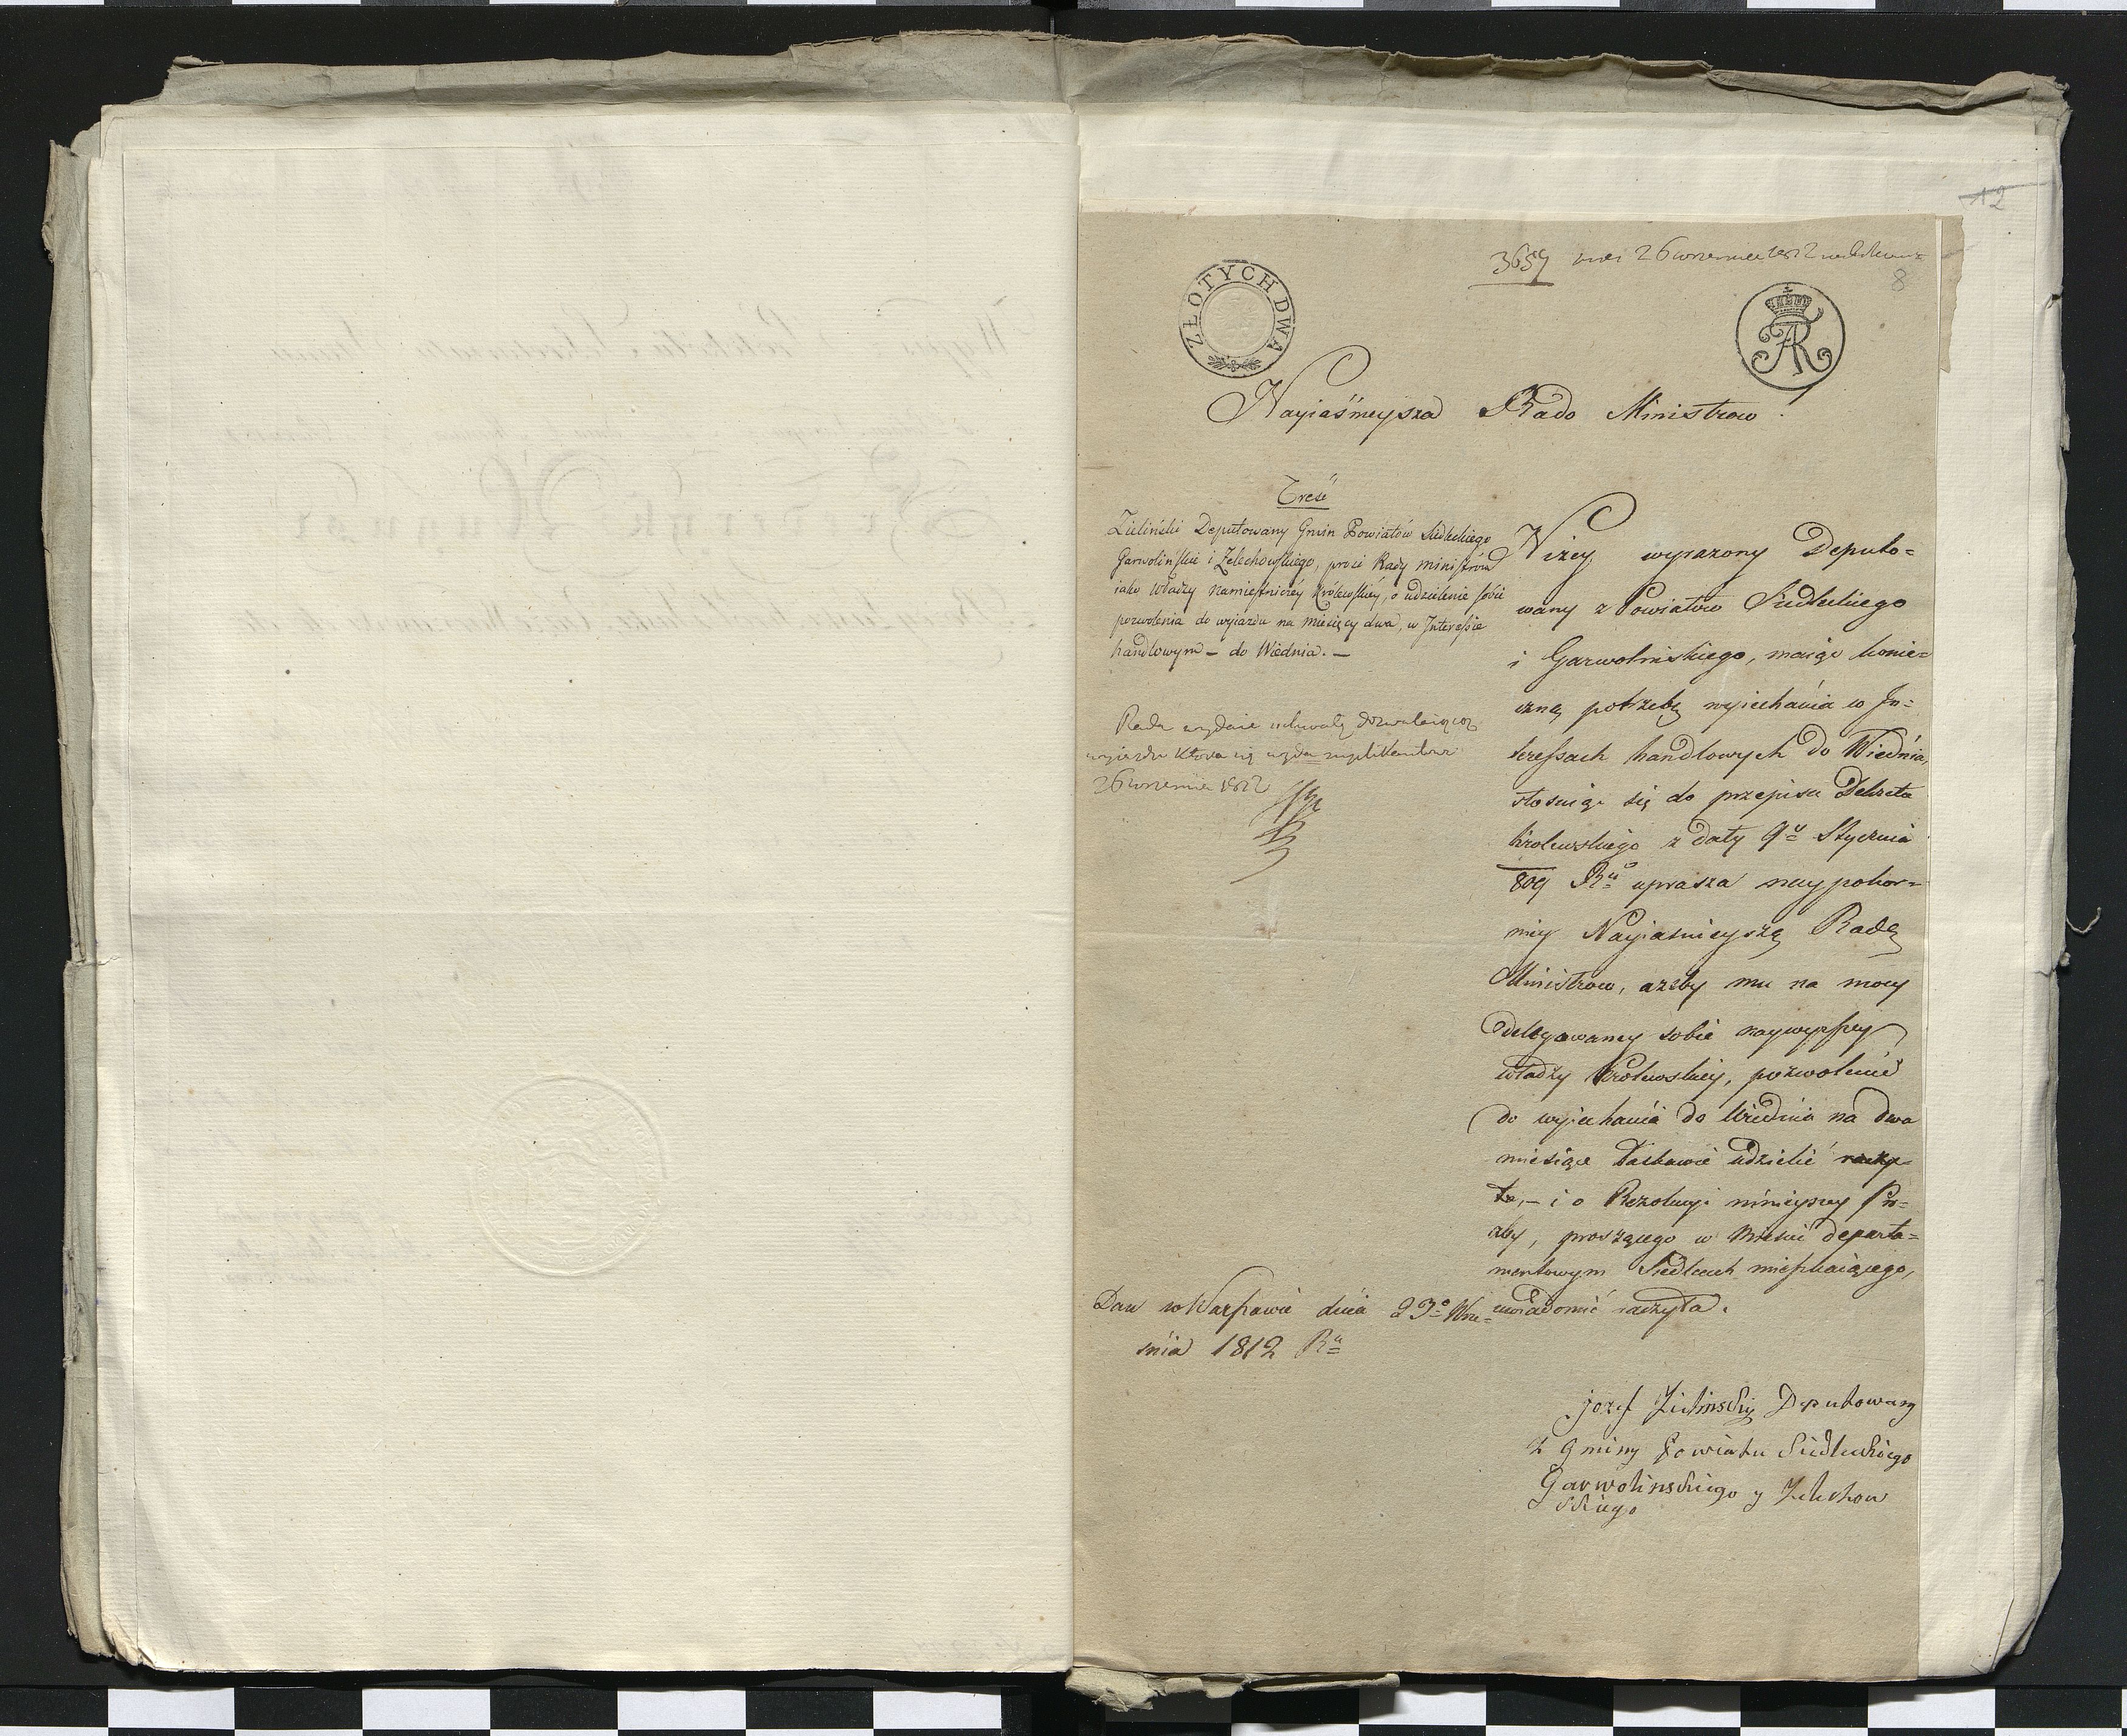 12
3659 26 września 1812
8
ZŁOTYCH DWA
Nayiaśnieysza Rado Ministrow!
Treść
Zieliński Deputowany Gmin Powiatów Siedleckiego
Garwolińskie i Żelechowskiego, prosi Rady Ministrów
iako Władzy Namiestniczéy Królewskiéy, o udzielenie sobie
pozwolenia do wyiazdu na miesięcy dwa, w Interessie
handlowym – do Wiednia. –
Rada wydaie uchwałę dozwalaiącą
wyiazdu która się wyda suplikantowi
26 września 1812
Niżey wyrażony Deputo=
wany z Powiatow Siedleckiego
i Garwolinskiego, maiąc konie=
czną potrzebę wyiechania w In=
teressach handlowych do Wiednia,
stosuiąc się do przepisu Dekretu
Krolewskiego z daty 9º Stycznia
809 Rº uprasza naypokor=
niey Nayiasnieyszą Radę
Ministrow, ażeby mu na mocy
Delegowaney sobie naywyższey
władzy Krolewskiey, pozwolenie
do wyiechania do Wiednia na dwa
miesiące łaskawie udzielić
i o Rezolucyi ninieyszey Pro=
źby, proszącego w Mieście departa=
mentowym Siedlcach mieszkaiącego,
uwiadomić raczyła.
Dan w Warszawie dnia 23º Wrze=
śnia 1812 Rº
Jozef Zielinsky Deputowany
z Gminy Powiatu Siedleckiego
Garwolinskiego y Zelechow
skiego